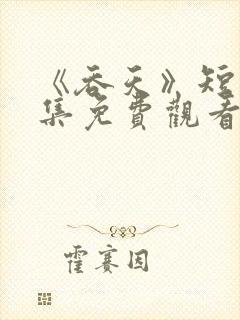 《吞天》短
集免費觀看
霍賽因